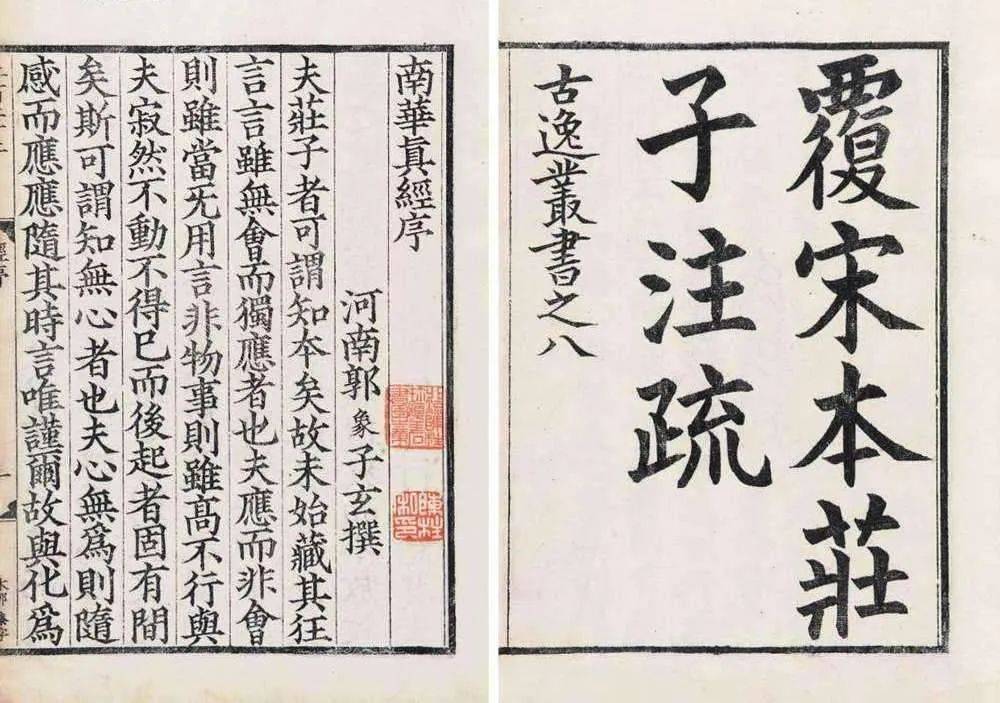 覆宋本莊
子注疏
古逸叢書之八
南華真經序
河南郭象子玄撰
夫莊子者可謂知夲矣故未始藏其狂
言言雖無會而獨應者也夫應而非會
則雖當无用言非物事則雖高不行與
夫寂然不動不得已而後起者固有間
矣斯可謂知無心者也夫心無為則隨
感而應應隨其時言唯謹爾故與化為